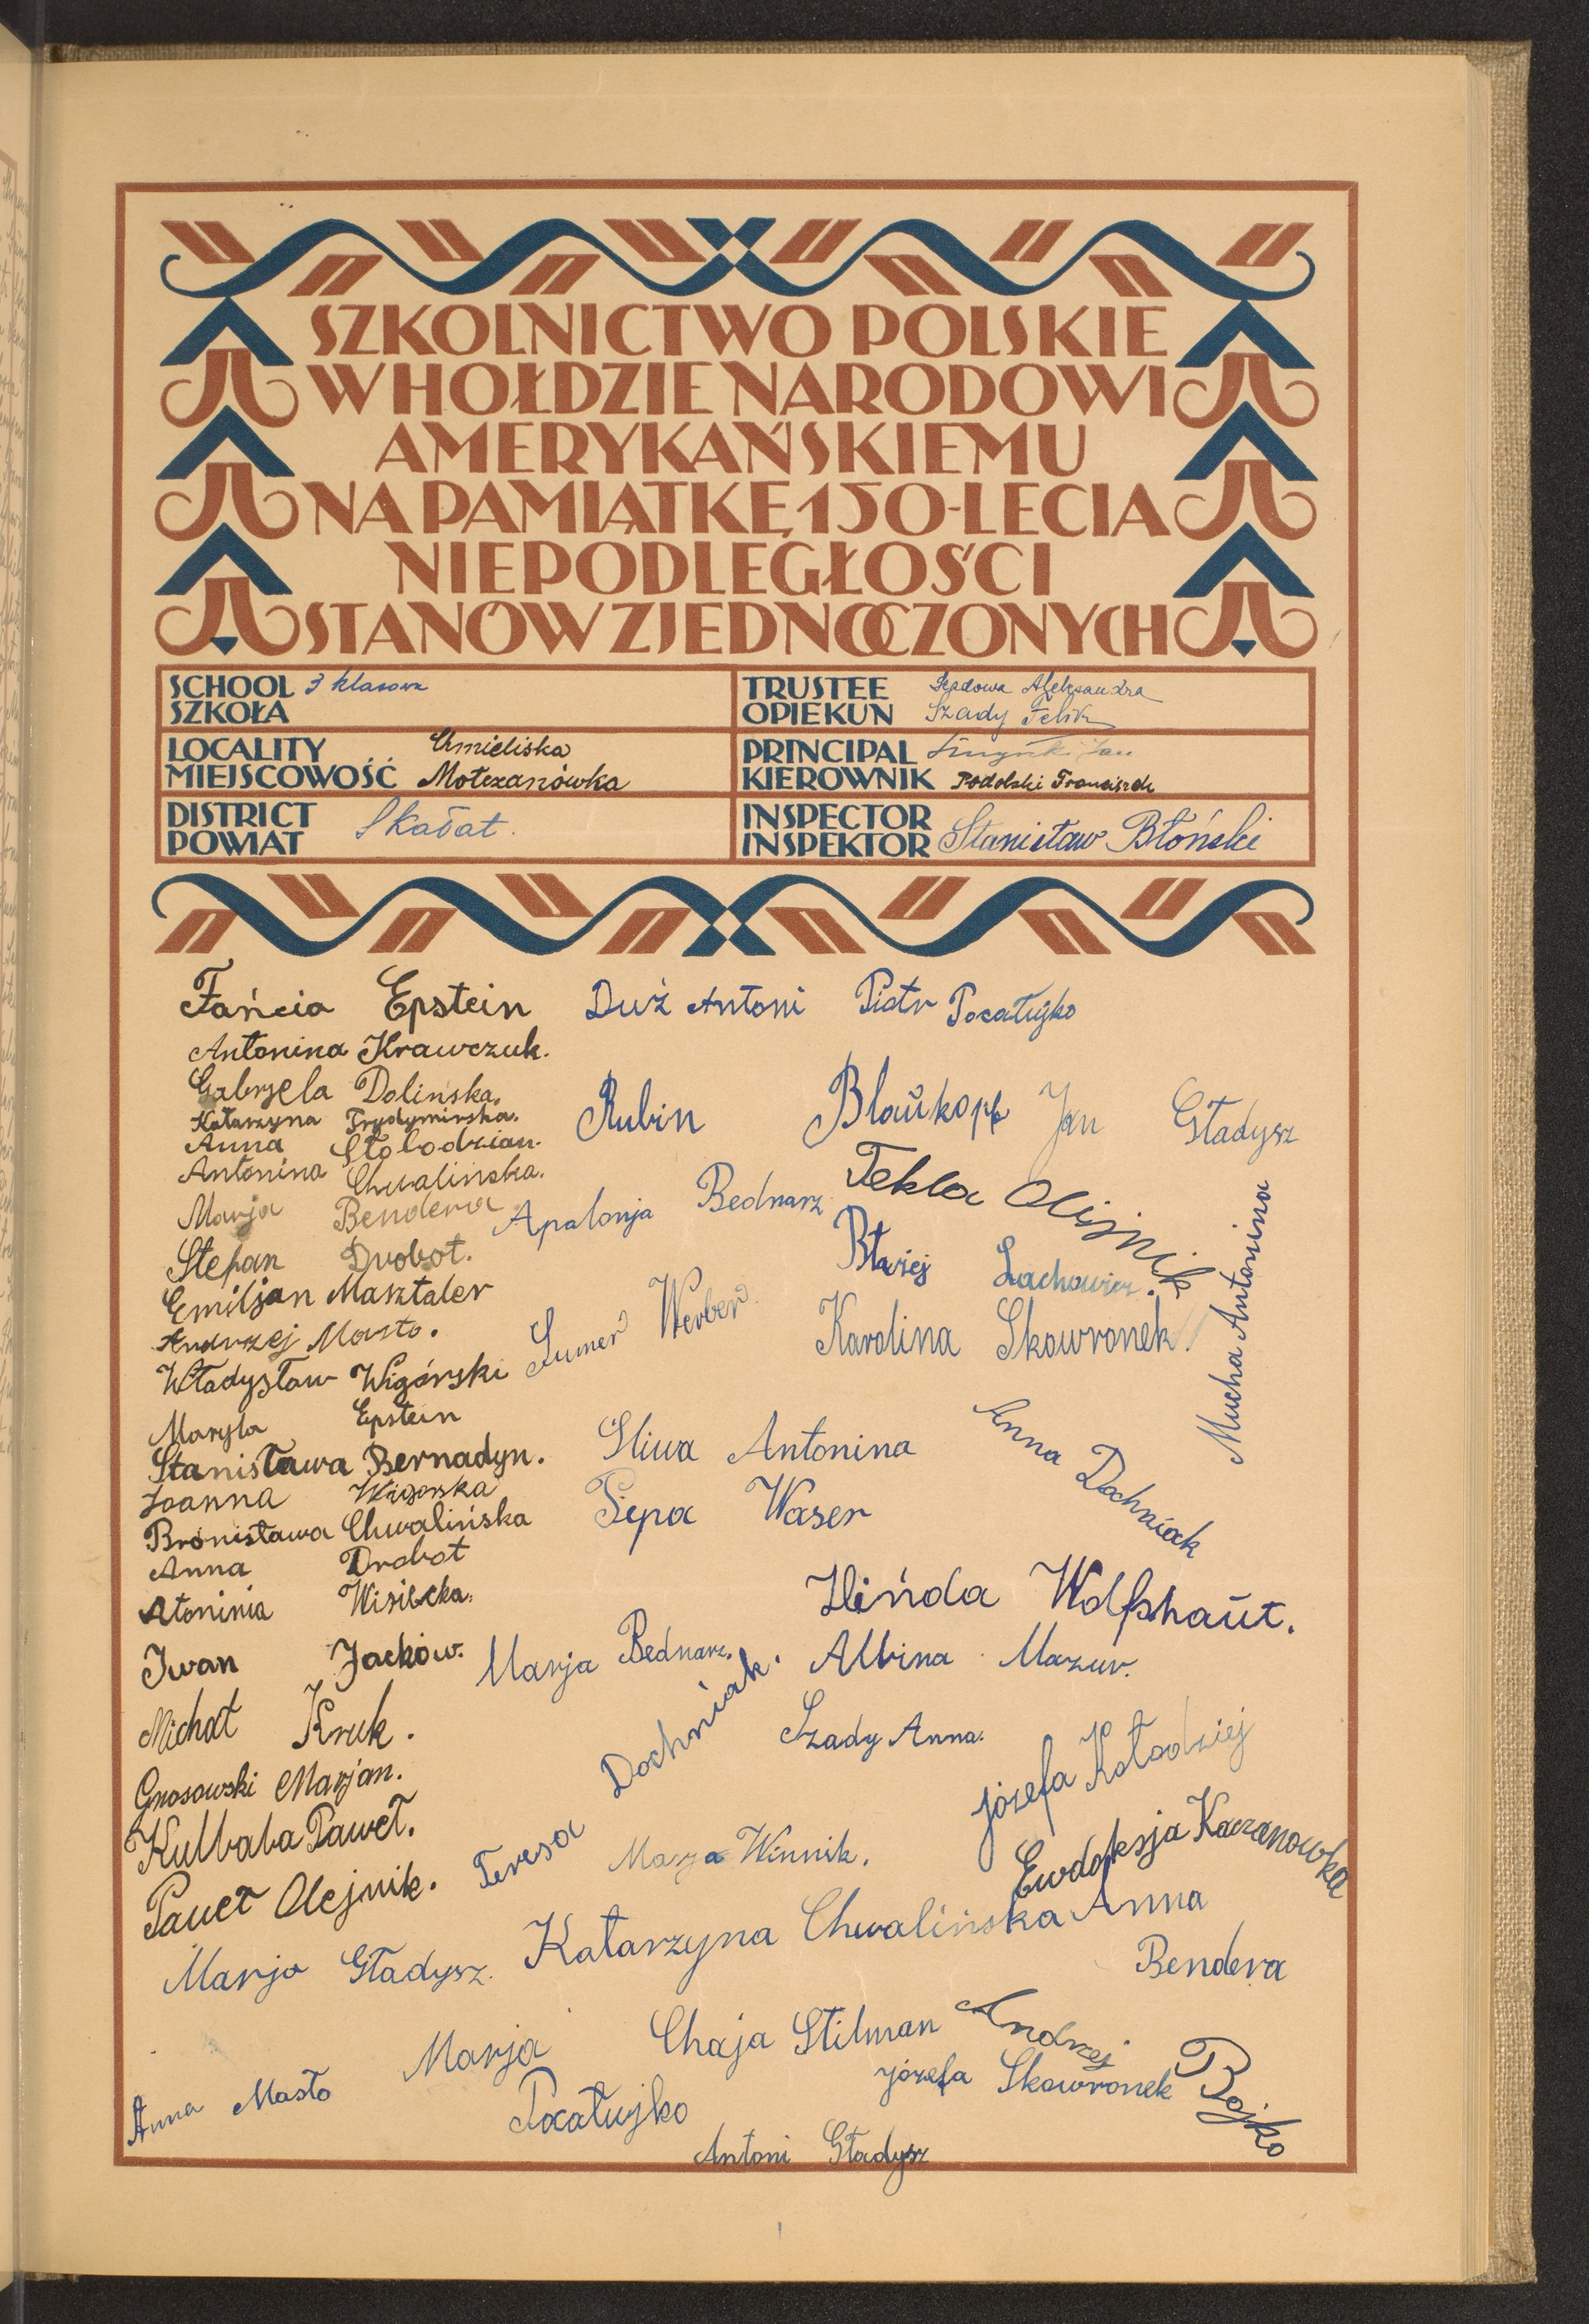 SZKOLNICTWO POLSKIE
W HOŁDZIE NARODOWI
AMERYKAŃSKIEMU
NA PAMIĄTKĘ 150-LECIA
NIEPODLEGŁOŚCI
STANÓW ZJEDNOCZONYCH
SCHOOL 3 klasowa
SZKOŁA
TRUSTEE Aleksandra
OPIEKUN Szady Felik
LOCALITY Chmieliska
MIEJSCOWOŚĆ Mołczanówka
PRINCIPAL Jan
KIEROWNIK Podolski Franciszek
DISTRICT
POWIAT Skałat.
INSPECTOR
INSPEKTOR Stanisław Błoński
Fańcia Epstein Duż Antoni Piotr Pocałujko
Antonina Krawczuk.
Gabryela Dolińska.
Katarzyna Trydymirska.
Rubin Blaŭkopf Jan Gładysz
Anna Słobodzian.
Antonina Chwalińska.
Tekla Olijnik
Marja Bendera Apalonja Bednarz
Mucha Antonina
Stefan Drobot.
Błażej Lachowicz.
Emiljan Masztaler
Andrzej Masło.
Sumer Werber
Karolina Skowronek
Władysław Wigórski
Maryla Epstein
Śliwa Antonina
Anna Dachniak
Stanisława Bernadyn.
Joanna Wigorska
Pepa Waser
Bronisława Chwalińska
Anna Drobot
Hińda Wolfshaŭt.
Atoninia Wisiecka.
Iwan Jacków.
Marja Bednarz.
Albina Mazur.
Michał Kruk.
Teresa Dachniak.
Szady Anna.
Józefa Kołodziej
Gnosowski Marjan.
Kulbaba Paweł.
Marja Winnik.
Ewdoksja Kaczanowka
Paweł Olejnik.
Marja Gładysz.
Katarzyna Chwalińska
Anna
Bendera
Chaja Stilman
Andrzej
Bojko
Marja
Pocałujko
Józefa Skowronek
Anna Masło
Antoni Gładysz